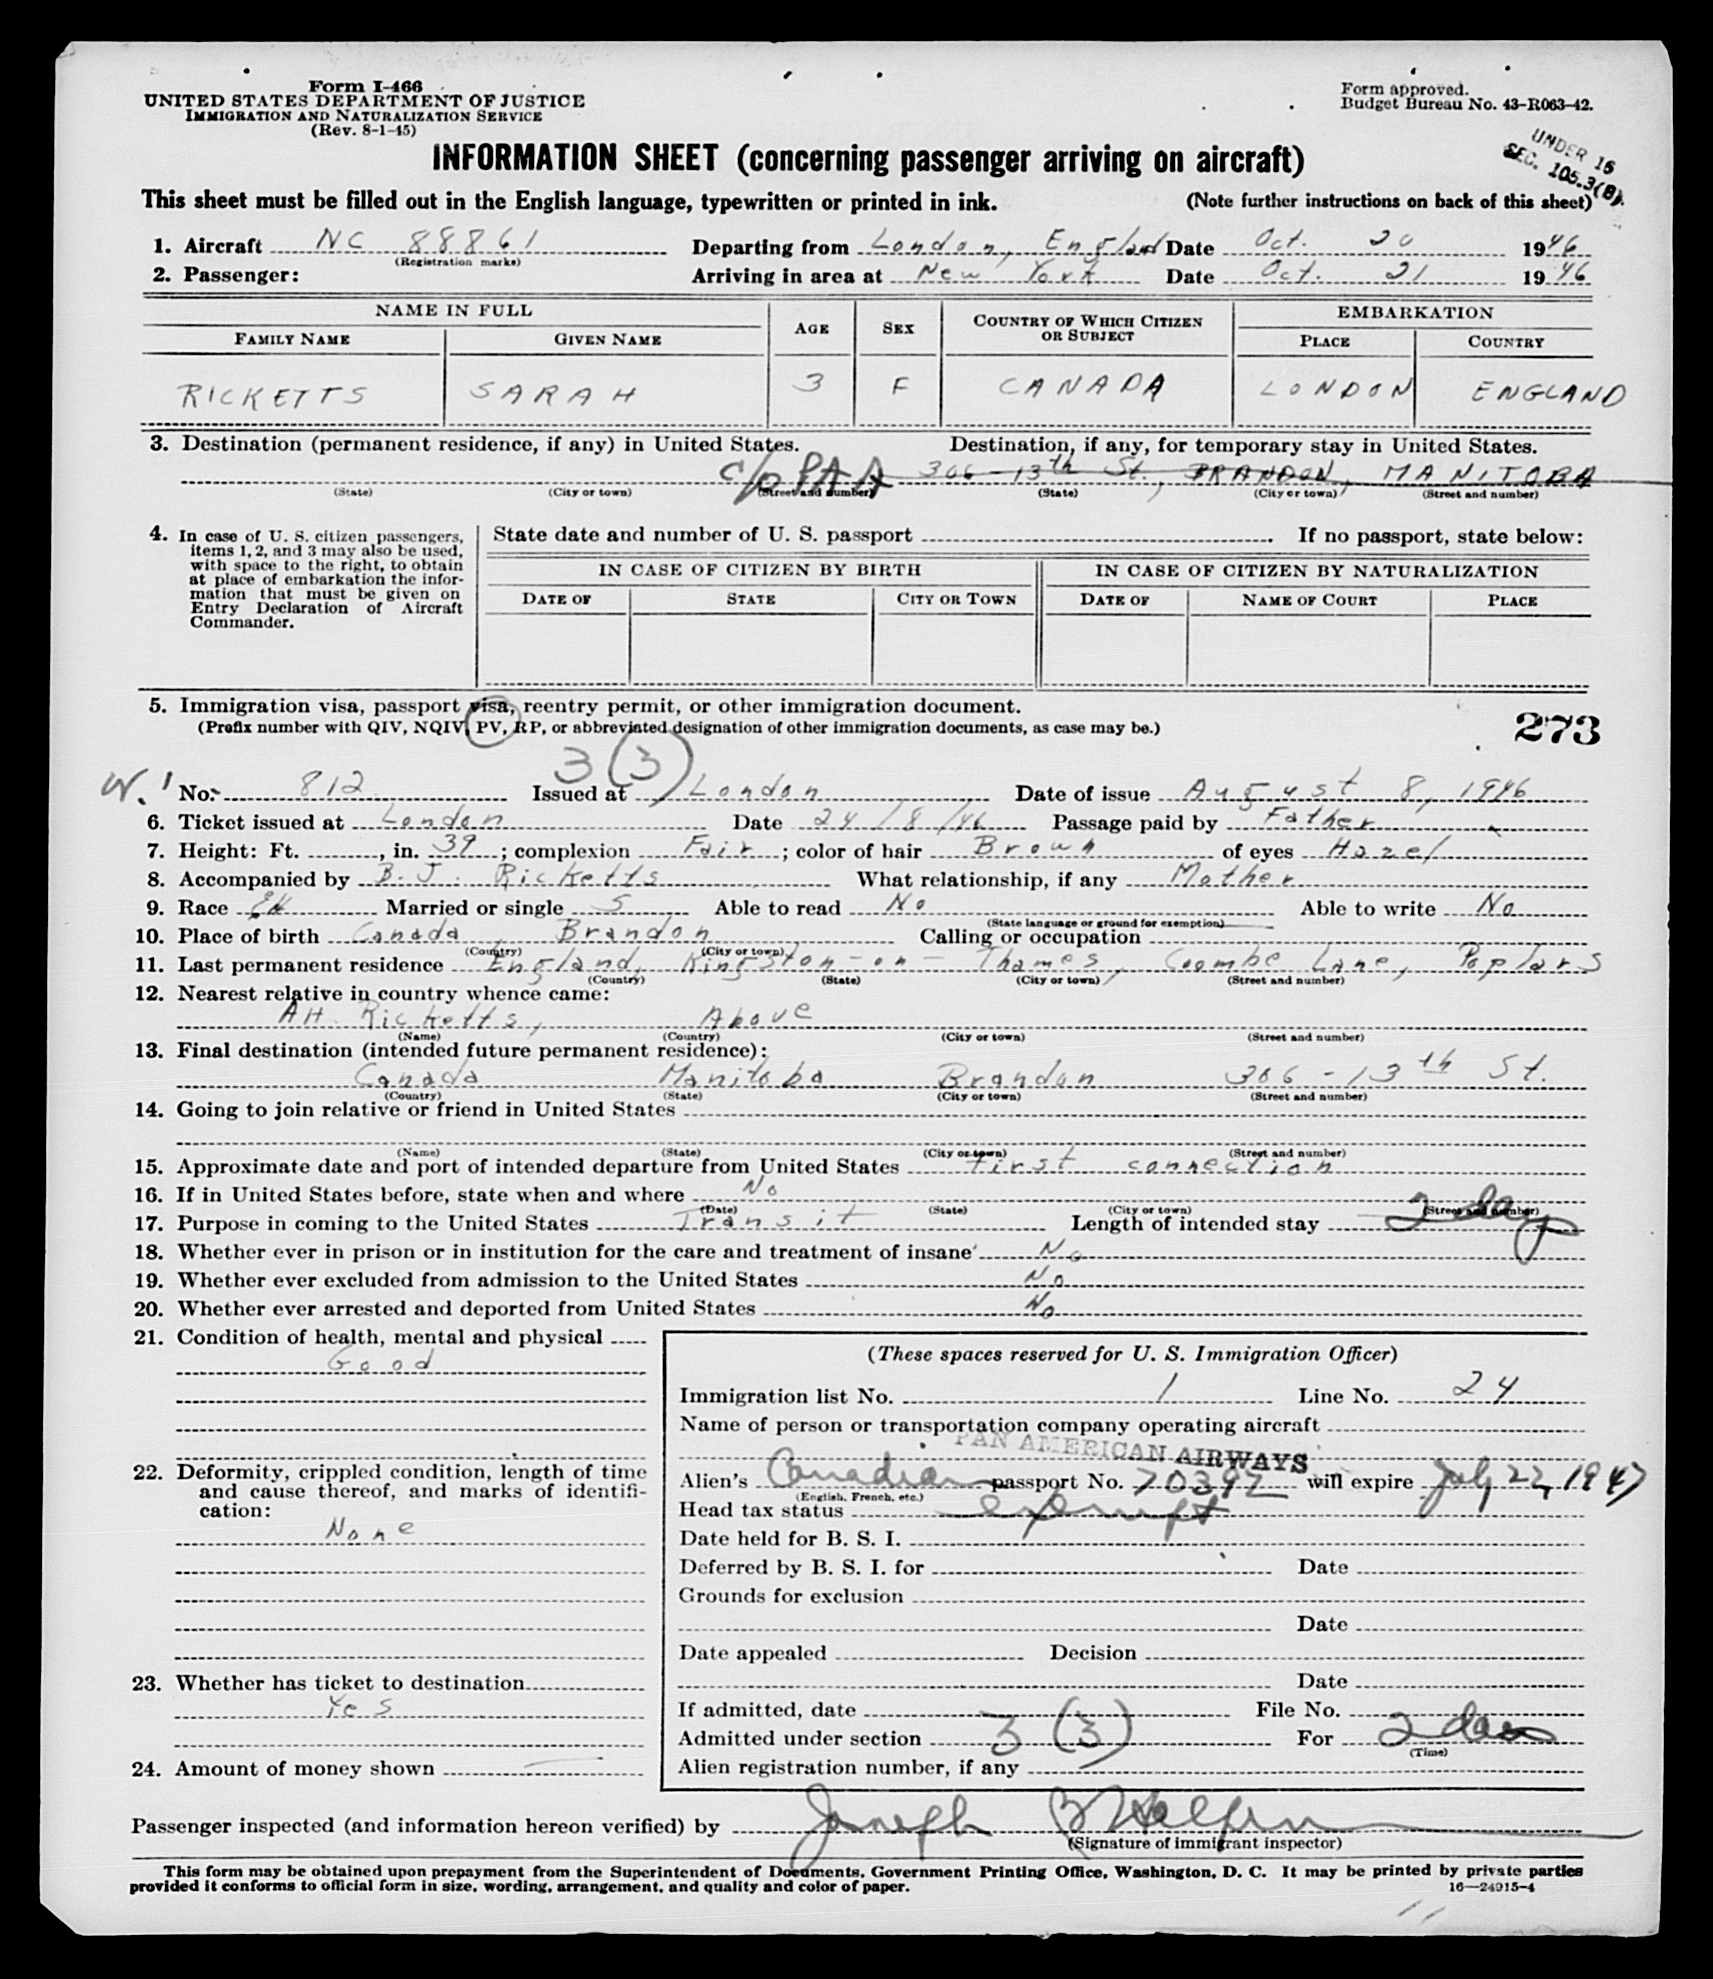 Form I-466
UNITED STATES DEPARTMENT OF JUSTICE
IMMIGRATION AND NATURALIZATION SERVICE
(Rev. 8-1-45)
Form approved.
Budget Bureau No. 43-R063-42.
UNDER 16
SEC. 105.3(B).
INFORMATION SHEET (concerning passenger arriving on aircraft)
This sheet must be filled out in the English language, typewritten or printed in ink. (Note further instructions on back of this sheet)
1. Aircraft NC 88861 Departing from London, England Date Oct. 20 1946
(Registration marks)
2. Passenger: Arriving in area at New York Date Oct. 21 1946
NAME IN FULL AGE SEX COUNTRY OF WHICH CITIZEN OR SUBJECT EMBARKATION
FAMILY NAME GIVEN NAME PLACE COUNTRY
RICKETTS SARAH 3 F CANADA LONDON ENGLAND
3. Destination (permanent residence, if any) in United States. Destination, if any, for temporary stay in United States.
c/o PAA 306-13th St., BRANDON, MANITOBA
(State) (City or town) (Street and number) (State) (City or town) (Street and number)
4. In case of U. S. citizen passengers, items 1, 2, and 3 may also be used, with space to the right, to obtain at place of embarkation the information that must be given on Entry Declaration of Aircraft Commander.
State date and number of U. S. passport . If no passport, state below:
IN CASE OF CITIZEN BY BIRTH IN CASE OF CITIZEN BY NATURALIZATION
DATE OF STATE CITY OR TOWN DATE OF NAME OF COURT PLACE
5. Immigration visa, passport visa, reentry permit, or other immigration document.
(Prefix number with QIV, NQIV, PV, RP, or abbreviated designation of other immigration documents, as case may be.)
273
3(3)
No. 812 Issued at London Date of issue August 8, 1946
6. Ticket issued at London Date 24/8/46 Passage paid by Father
7. Height: Ft. , in. 39; complexion Fair; color of hair Brown of eyes Hazel
8. Accompanied by B. J. Ricketts What relationship, if any Mother
9. Race Married or single S Able to read No Able to write No
(State language or ground for exemption)
10. Place of birth Canada Brandon Calling or occupation
(Country) (City or town)
11. Last permanent residence England, Kingston-on-Thames, Coombe Lane, Poplars
(Country) (State) (City or town) (Street and number)
12. Nearest relative in country whence came:
AH. Ricketts, Above
(Name) (Country) (City or town) (Street and number)
13. Final destination (intended future permanent residence):
Canada Manitoba Brandon 306-13th St.
(Country) (State) (City or town) (Street and number)
14. Going to join relative or friend in United States
(Name) (State) (City or town) (Street and number)
15. Approximate date and port of intended departure from United States first connection
16. If in United States before, state when and where No
(Date) (State) (City or town) (Street and number)
17. Purpose in coming to the United States Transit Length of intended stay 2 day
18. Whether ever in prison or in institution for the care and treatment of insane No
19. Whether ever excluded from admission to the United States No
20. Whether ever arrested and deported from United States No
21. Condition of health, mental and physical
Good
22. Deformity, crippled condition, length of time and cause thereof, and marks of identification:
None
23. Whether has ticket to destination
Yes
24. Amount of money shown —
(These spaces reserved for U. S. Immigration Officer)
Immigration list No. 1 Line No. 24
Name of person or transportation company operating aircraft
PAN AMERICAN AIRWAYS
Alien's Canadian passport No. 70392 will expire July 22, 1947
(English, French, etc.)
Head tax status exempt
Date held for B. S. I.
Deferred by B. S. I. for Date
Grounds for exclusion
Date
Date appealed Decision
Date
If admitted, date File No.
Admitted under section 3(3) For 2 days
(Time)
Alien registration number, if any
Passenger inspected (and information hereon verified) by Joseph B Halpern
(Signature of immigrant inspector)
This form may be obtained upon prepayment from the Superintendent of Documents, Government Printing Office, Washington, D. C. It may be printed by private parties
provided it conforms to official form in size, wording, arrangement, and quality and color of paper.
16—24915-4